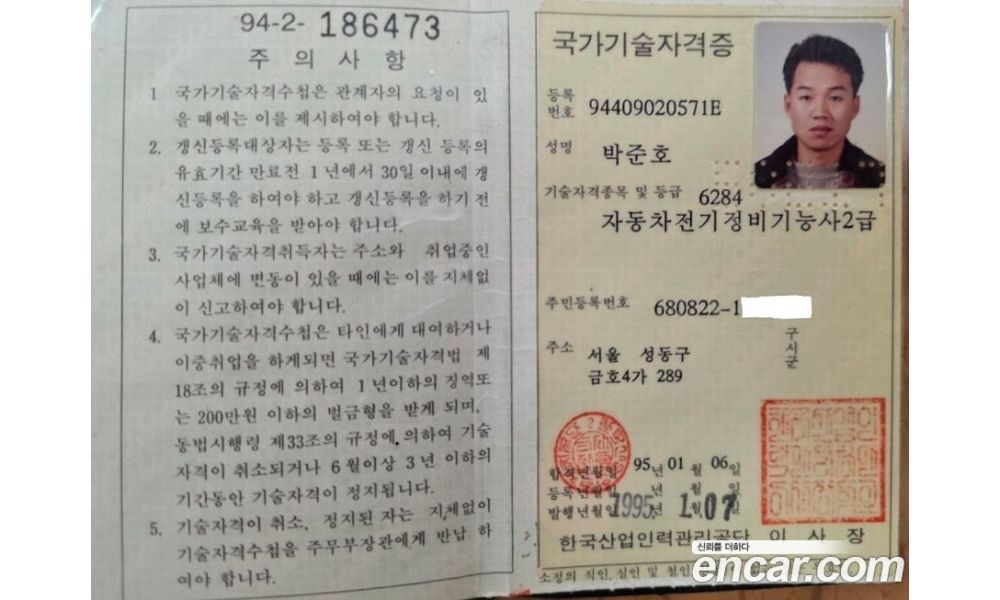 94-2- 186473
주 의 사 항
1 국가기술자격수첩은 관계자의 요청이 있
을 때에는 이를 제시하여야 합니다.
2. 갱신등록대상자는 등록 또는 갱신 등록의
유효기간 만료전 1년에서 30일 이내에 갱
신등록을 하여야 하고 갱신등록을 하기 전
에 보수교육을 받아야 합니다.
3. 국가기술자격취득자는 주소와 취업중인
사업체에 변동이 있을 때에는 이를 지체없
이 신고하여야 합니다.
4. 국가기술자격수첩은 타인에게 대여하거나
이중취업을 하게되면 국가기술자격법 제
18조의 규정에 의하여 1년이하의 징역또
는 200만원 이하의 벌금형을 받게 되며,
동법시행령 제33조의 규정에 의하여 기술
자격이 취소되거나 6월이상 3년 이하의
기간동안 기술자격이 정지됩니다.
5. 기술자격이 취소, 정지된 자는 지체없이
기술자격수첩을 주무부장관에게 반납 하
여야 합니다.
국가기술자격증
등록
번호 94409020571E
성명 박준호
기술자격종목 및 등급 6284
자동차전기정비기능사2급
주민등록번호 680822-1
주소 서울 성동구
금호4가 289
구
시
군
합격년월일 95년 01월 06일
등록년월일 년 월 일
발행년월일 1995 1.07
한국산업인력관리공단 이 사 장
신뢰를 더하다
encar.com
소정의 직인, 실인 및 철인